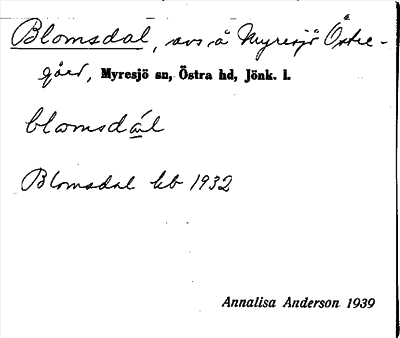 Blomsdal, avs å Myresjö Östre-
gård, Myresjö sn, Östra hd, Jönk. l.
blomsdál
Blomsdal kb 1932
Annalisa Anderson 1939